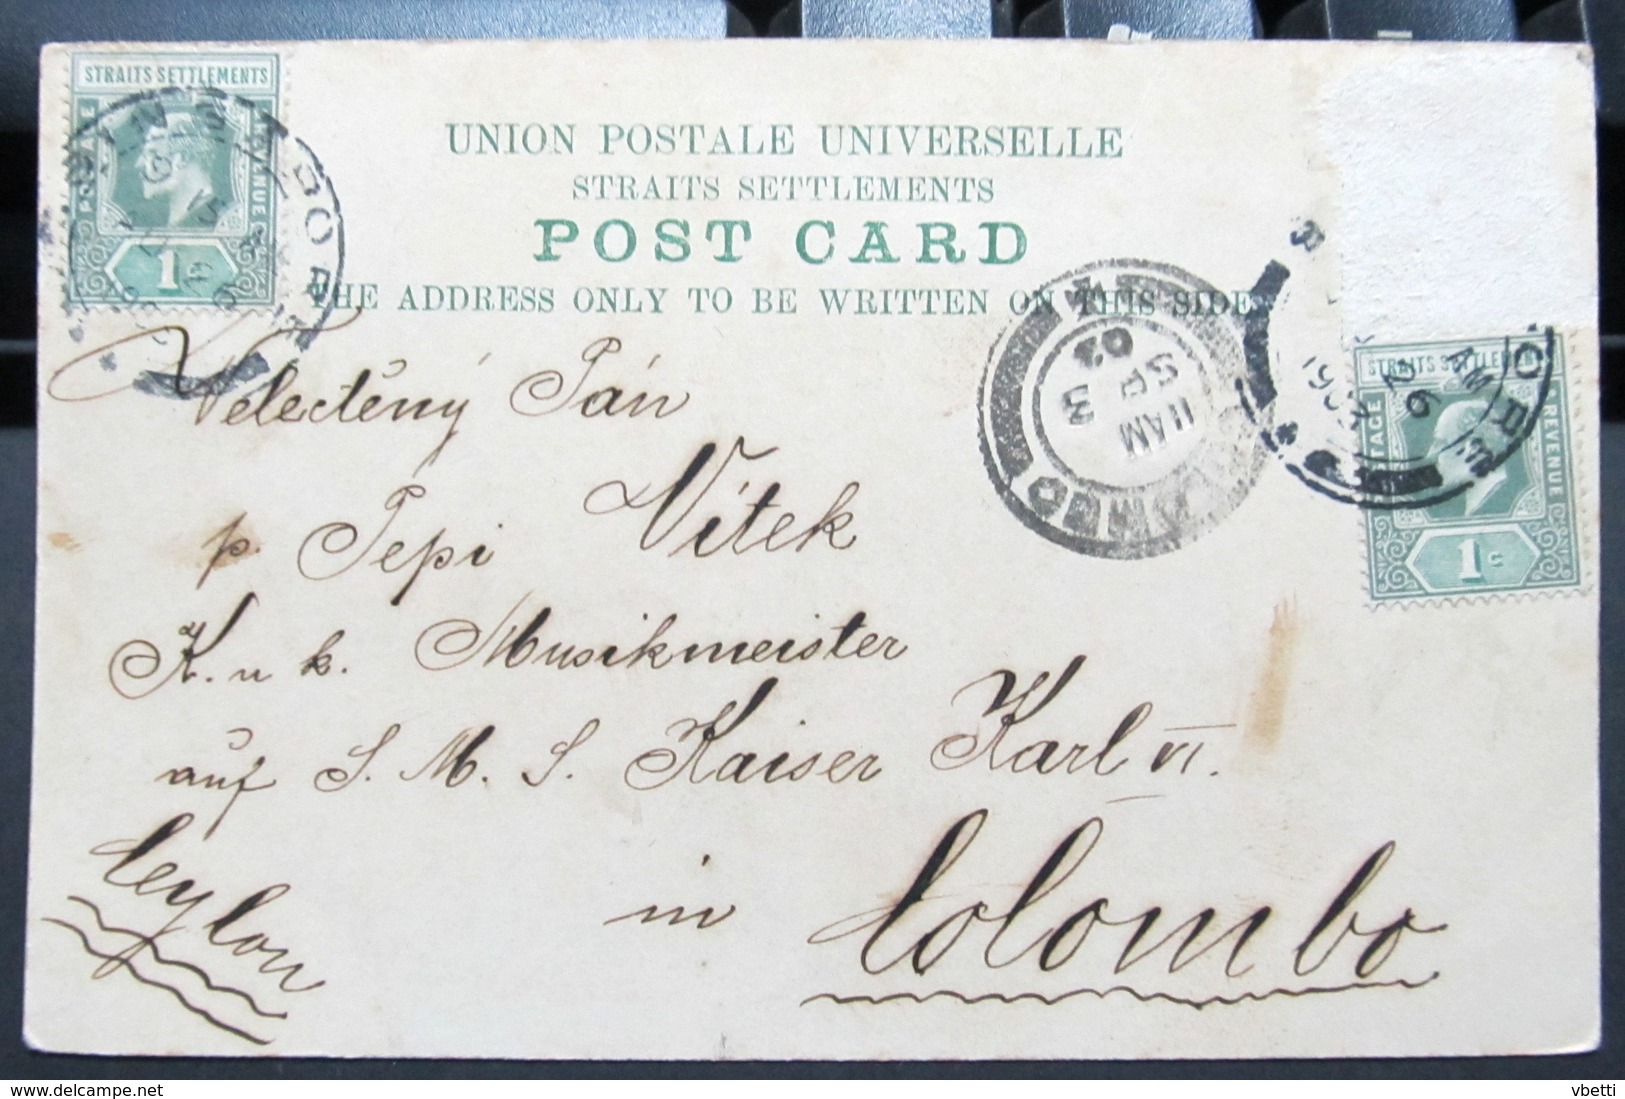 STRAITS SETTLEMENTS
POSTAGE
REVENUE
1c
UNION POSTALE UNIVERSELLE
STRAITS SETTLEMENTS
POST CARD
THE ADDRESS ONLY TO BE WRITTEN ON THIS SIDE
11 AM
SP 3
03
STRAITS SETTLEMENTS
POSTAGE
REVENUE
1c
Velectěný Pán
p. Pepi Vítek
K. u k. Musikmeister
auf S. M. S. Kaiser Karl VI.
in Colombo
Ceylon
delcampe.net
vbetti